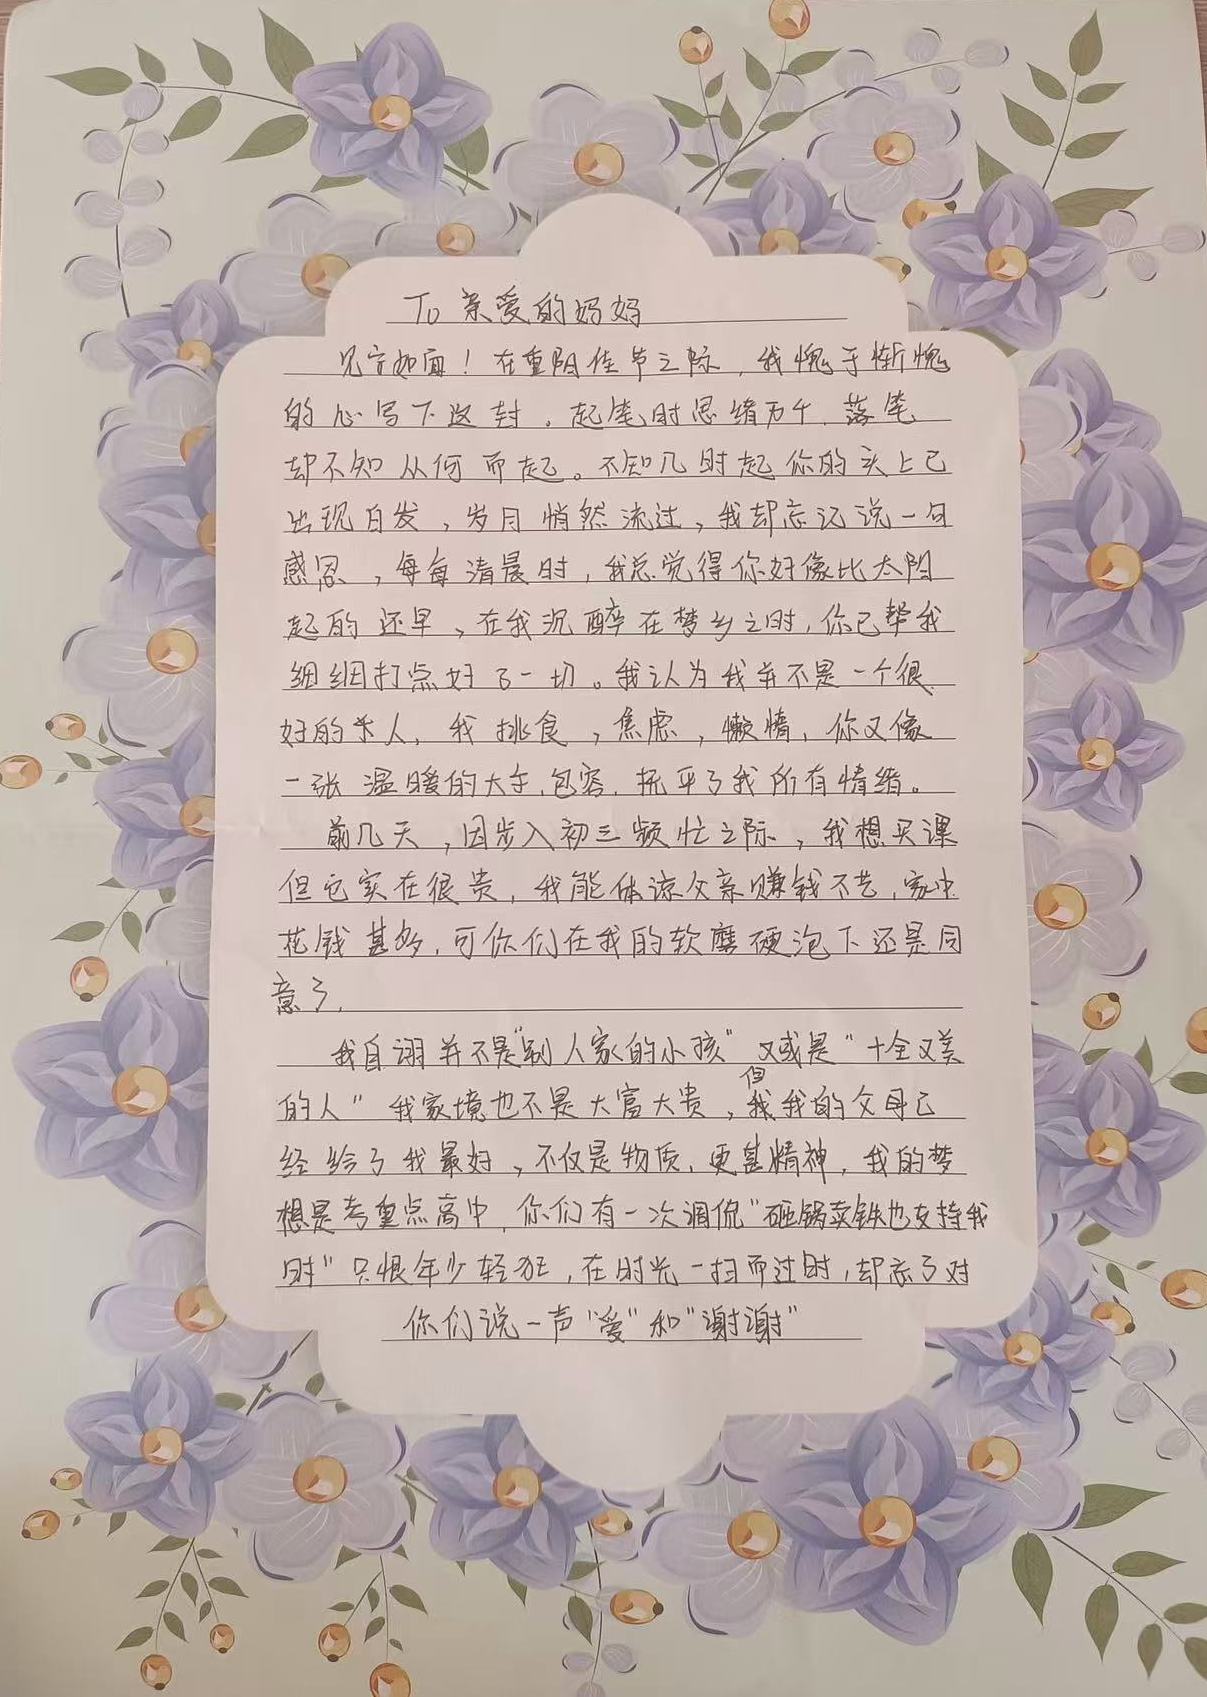 To 亲爱的妈妈
见字如面！在重阳佳节之际，我愧于惭愧
的心写下这封。起笔时思绪万千，落笔
却不知从何而起。不知几时起你的头上已
出现白发，岁月悄然流过，我却忘记说一句
感恩，每每清晨时，我总觉得你好像比太阳
起的还早，在我沉醉在梦乡之时，你已帮我
细细打点好了一切。我认为我并不是一个很
好的人，我挑食，焦虑，懒惰，你又像
一张温暖的大手，包容，抚平了我所有情绪。
前几天，因步入初三频忙之际，我想买课
但它实在很贵，我能体谅父亲赚钱不艺，家中
花钱甚多，可你们在我的软磨硬泡下还是同
意了，
我自诩并不是"别人家的小孩"又或是"十全又美
的人"我家境也不是大富大贵，但我的父母已
经给了我最好，不仅是物质，更甚精神，我的梦
想是考重点高中，你们有一次调侃"砸锅卖铁也支持我
时"只恨年少轻狂，在时光一扫而过时，却忘了对
你们说一声"爱"和"谢谢"